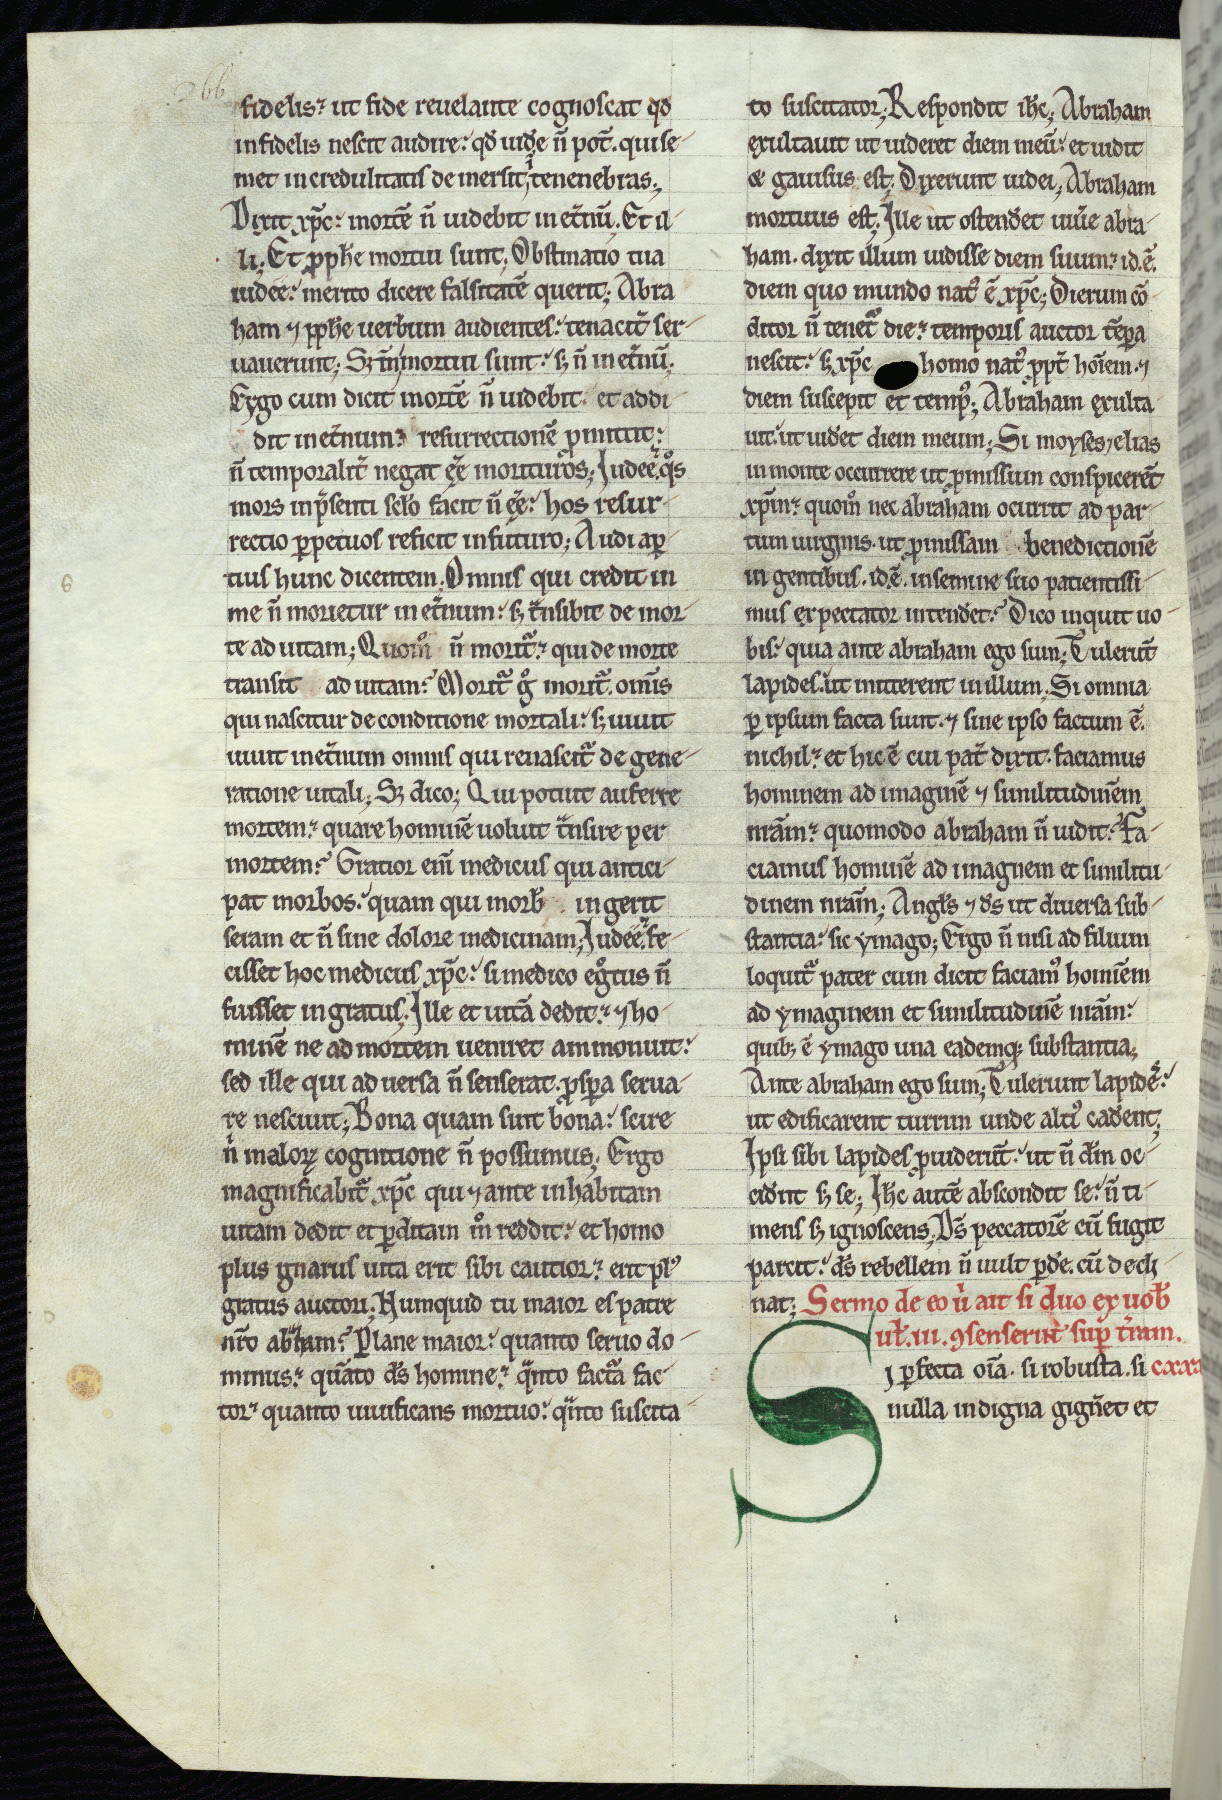 266
fidelis? ut fide reuelante cognoscat qđ
infidelis nescit audire: qđ uidẹe n̄ pot̄. qui se-
met incredulitatis demersit ĩ tenenebras;
Dixit xp̄c: mortē n̄ uidebit inet̄nū. Et il-
li; Et ꝓph̄e mortui sunt; Obstinatio tua
iudee: merito dicere falsitatē querit; Abra
ham ⁊ ꝓph̄e uerbum audientes: tenacit̄ ser-
uauerunt; Sꝫ mortui sunt: sꝫ n̄ inet̄nū.
Ergo cum dicit mortē n̄ uidebit. et addi-
dit inet̄num? resurrectionē ꝓmittit:
n̄ temporalit̄ negat eē morituros; Iudee. qͦs
mors inp̄senti sclo facit n̄ eē: hos resur-
rectio ꝑpetuos reficit infuturo; Audi aꝑ
tius hunc dicentem. Omnis qui credit in
me n̄ morietur inet̄num: sꝫ t̄nsibit de mor-
te ad uitam; Quom̊ n̄ morit᷑? qui de morte
transit ad uitam? Morit᷑ g̊ morit᷑. omīs
qui nascitur de conditione mortali: sꝫ uiuit
uiuit inet̄num omnis qui renascit᷑ de gene-
ratione uitali; Sꝫ dico; Qui potuit auferre
mortem? quare hominē uoluit t̄nsire per
mortem? Gratior eni medicus qui antici-
pat morbos: quam qui morb ingerit
seram et n̄ sine dolore medicinam; Iudee. fe-
cisset hoc medicus xp̄c: si medico egͦtus n̄
fuisset ingratus; Ille et uitā dedit? ⁊ ho-
minē ne ad mortem ueniret ammonuit:
sed ille qui aduersa n̄ senserat. ꝓspa serua-
re nesciuit; Bona quam sint bona: scire
n̄ maloꝝ cognitione n̄ possumus; Ergo
magnificabit᷑ xp̄c qui ⁊ ante inhabitam
uitam dedit et ꝑditam m̊ reddit: et homo
plus gnarus uita erit sibi cautior? erit plꝰ
gratus auctori; Numquid tu maior es patre
nr̄o abraham? Plane maior: quanto seruo do-
minus? quāto d̄s homine? qᷓnto factᷓa fac-
tor? quanto uiuificans mortuo: qᷓnto suscita-
to suscitator; Respondit ih̄c; Abraham
exultauit ut uideret diem meū: et uidit
& gauisus est; Dixerunt iudei; Abraham
mortuus est; Ille ut ostendet uiūe abra-
ham. dixit illum uidisse diem suum? id. ē.
diem quo mundo natꝰ ē xp̄c; Dierum cō-
ditor n̄ tenet᷑ die? temporis auctor tēꝑa
nescit: sꝫ xp̄c homo natꝰ ꝓpt̄ hoīem. ⁊
diem suscepit et tempꝰ; Abraham exulta-
uit. ut uidet diem meum; Si moyses ⁊ elias
in monte occurrere ut ꝓmissum conspicerēt
xp̄m? quom̊ nec abraham ocurrit ad par-
tum uirginis. ut ꝓmissam benedictionē
in gentibus. id. ē. insemine suo patientissi-
mus expectator intendet? Dico inquit uo-
bis: quia ante abraham ego sum; Tulerūt
lapides. ut mitterent in illum; Si omnia
ꝑ ipsum facta sunt. ⁊ sine ipso factum ē.
nichil? et hic ē cui pat̄ dixit. faciamus
hominem ad imaginē ⁊ similitudinēm
nr̄am? quomodo abraham n̄ uidit? Fa-
ciamus hominē ad imaginem et similitu-
dinem nr̄am; Angls ⁊ d̄s ut diuersa sub-
stantia: sic ymago; Ergo n̄ nisi ad filium
loquit᷑ pater cum dicit faciamꝰ homīem
ad ymaginem et similitudinē nr̄am:
quibꝫ ē ymago una eademqꝫ substantia;
Ante abraham ego sum; Tulerunt lapides:
ut edificarent turrim unde altiꝰ cadent;
Ipsi sibi lapides ꝓuiderūt: ut n̄ dn̄m oc-
cidint sꝫ se; Ih̄c autē abscondit se: n̄ ti-
mens sꝫ ignoscens; D̄s peccatorē cū fugit
parcit: d̄s rebellem n̄ uult ꝑde. cū decli-
nat; Sermo de eo ū ait si duo ex uob̄
ul̄. iii. ꝯsenserint sup t̄ram.
Si ꝑfecta oīa. si robusta. si
nulla indigna gign̄et et